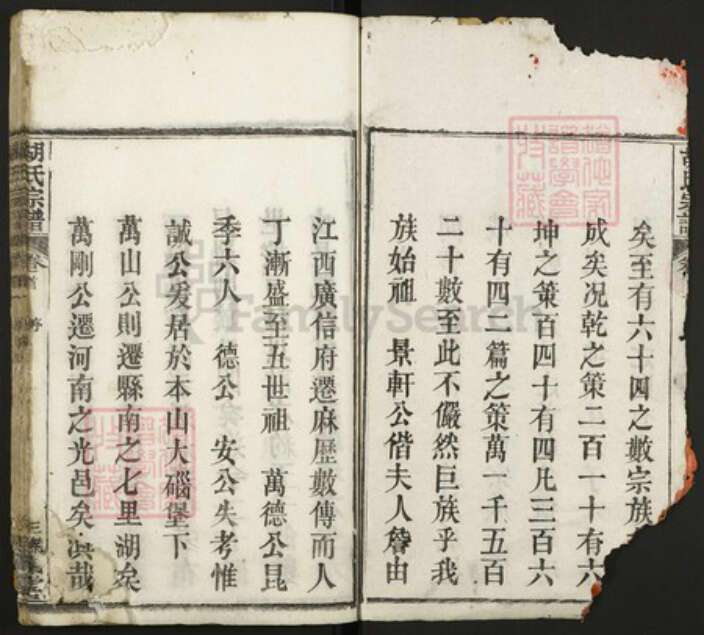 矣至有六十四之數宗族
成矣况乾之策二百一十有六
坤之策百四十有四凡三百六
十有四二篇之策萬一千五百
二十數至此不儼然巨族乎我
族始祖 景軒公偕夫人詹由
江西廣信府遷麻歷數傳而人
丁漸盛至五世祖 萬德公昆
季六人 德公 安公失考惟
誠公爰居於本山大磖堡下
萬山公則遷縣南之七里湖矣
萬剛公遷河南之光邑矣洪哉
胡氏宗譜 卷首 序
胡氏宗譜
FamilySearch